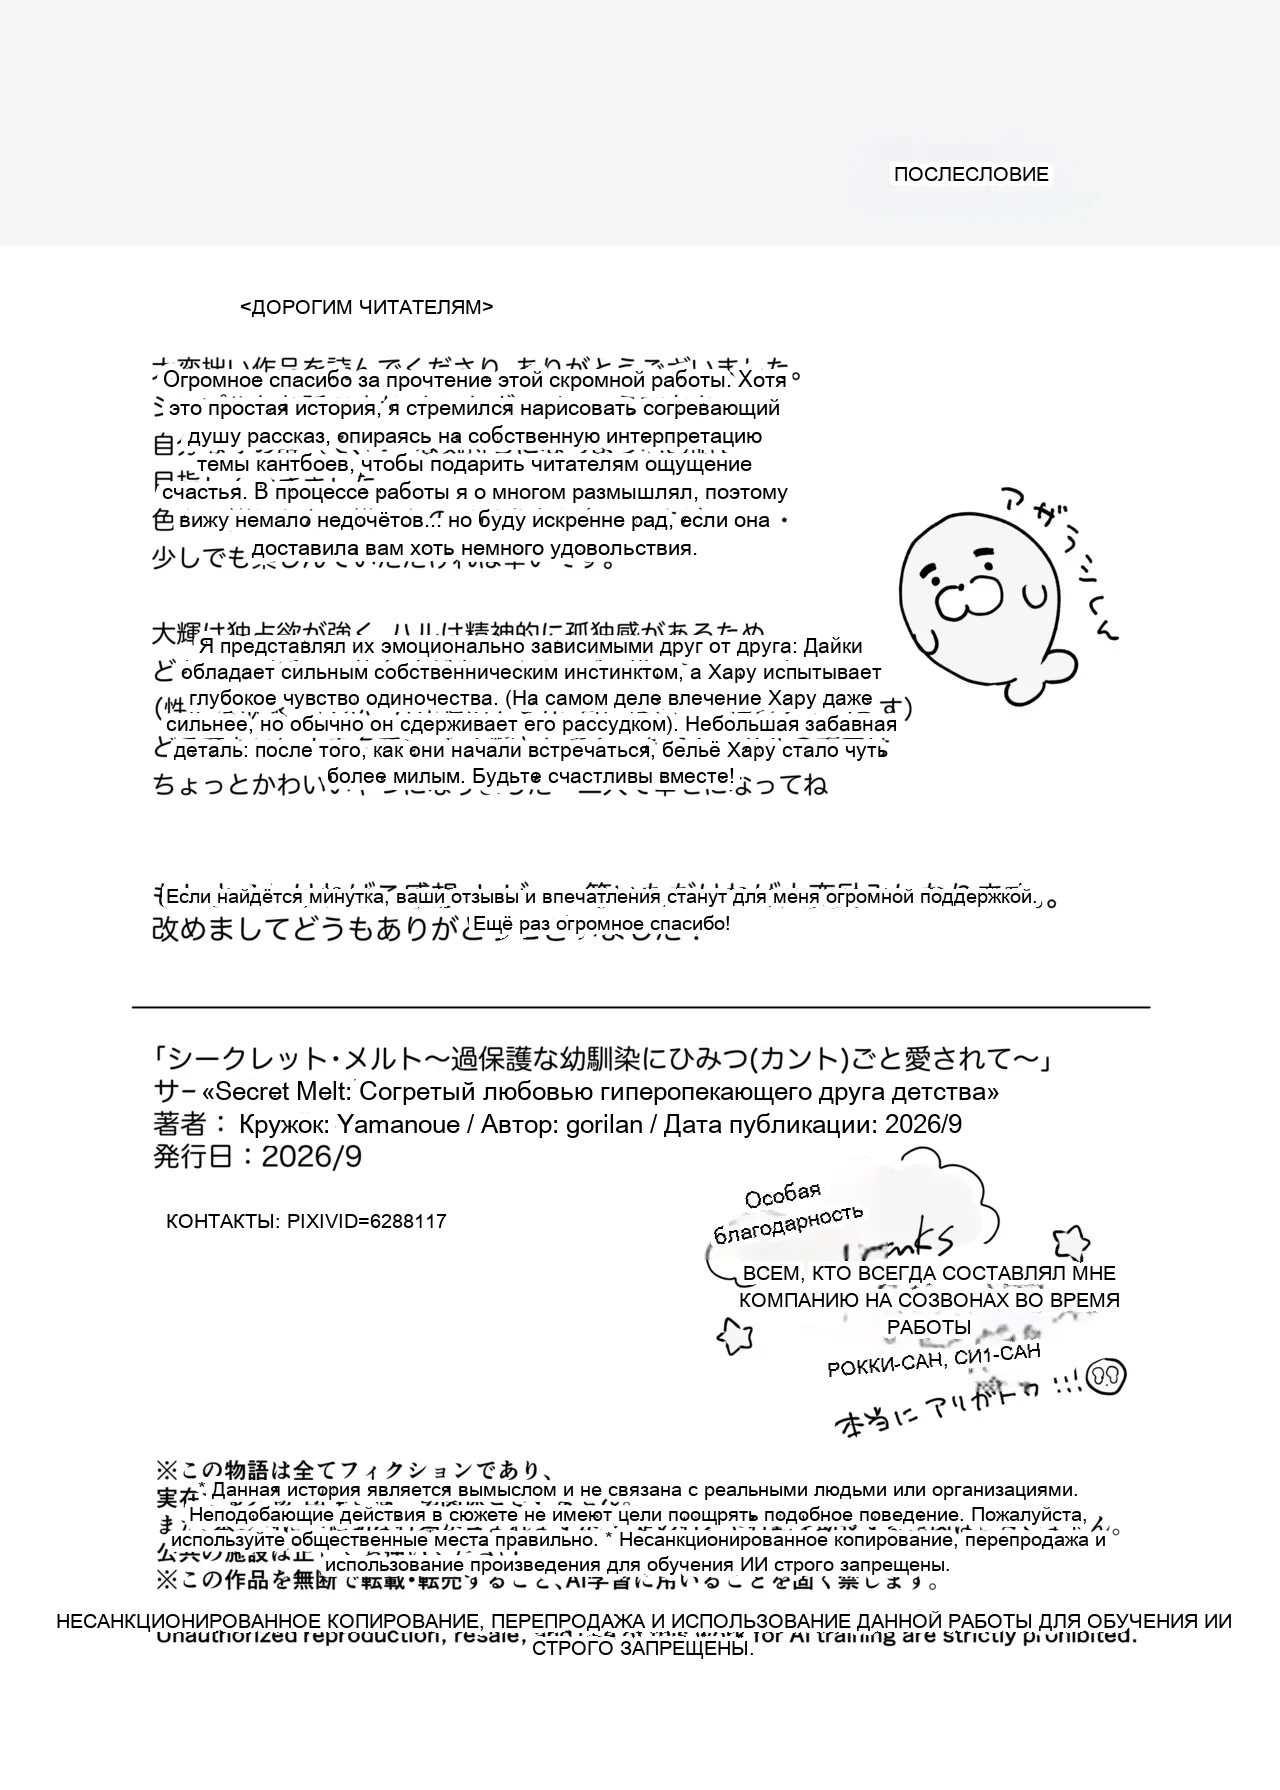 ПОСЛЕСЛОВИЕ
<ДОРОГИМ ЧИТАТЕЛЯМ>
Огромное спасибо за прочтение этой скромной работы. Хотя
это простая история, я стремился нарисовать согревающий
душу рассказ, опираясь на собственную интерпретацию
темы кантбоев, чтобы подарить читателям ощущение
счастья. В процессе работы я о многом размышлял, поэтому
вижу немало недочётов... но буду искренне рад, если она
доставила вам хоть немного удовольствия.
少しでも
アザラシくん
Я представлял их эмоционально зависимыми друг от друга: Дайки
обладает сильным собственническим инстинктом, а Хару испытывает
глубокое чувство одиночества. (На самом деле влечение Хару даже
сильнее, но обычно он сдерживает его рассудком). Небольшая забавная
деталь: после того, как они начали встречаться, бельё Хару стало чуть
более милым. Будьте счастливы вместе!
ちょっとかわいい
になってね
Если найдётся минутка, ваши отзывы и впечатления станут для меня огромной поддержкой.
改めましてどうもありがと
Ещё раз огромное спасибо!
「シークレット・メルト～過保護な幼馴染にひみつ(カント)ごと愛されて～」
サー «Secret Melt: Согретый любовью гиперопекающего друга детства»
著者： Кружок: Yamanoue / Автор: gorilan / Дата публикации: 2026/9
発行日：2026/9
КОНТАКТЫ: PIXIVID=6288117
Особая
благодарность
ВСЕМ, КТО ВСЕГДА СОСТАВЛЯЛ МНЕ
КОМПАНИЮ НА СОЗВОНАХ ВО ВРЕМЯ
РАБОТЫ
РОККИ-САН, СИ1-САН
本当にアリガトウ!!!
※この物語は全てフィクションであり、
* Данная история является вымыслом и не связана с реальными людьми или организациями.
Неподобающие действия в сюжете не имеют цели поощрять подобное поведение. Пожалуйста,
используйте общественные места правильно. * Несанкционированное копирование, перепродажа и
использование произведения для обучения ИИ строго запрещены.
※この作品を無断で転載・転売すること、AI学習に用いることを固く禁じます。
НЕСАНКЦИОНИРОВАННОЕ КОПИРОВАНИЕ, ПЕРЕПРОДАЖА И ИСПОЛЬЗОВАНИЕ ДАННОЙ РАБОТЫ ДЛЯ ОБУЧЕНИЯ ИИ
Unauthorized reproduction, resale, and use of this work for AI training are strictly prohibited.
СТРОГО ЗАПРЕЩЕНЫ.